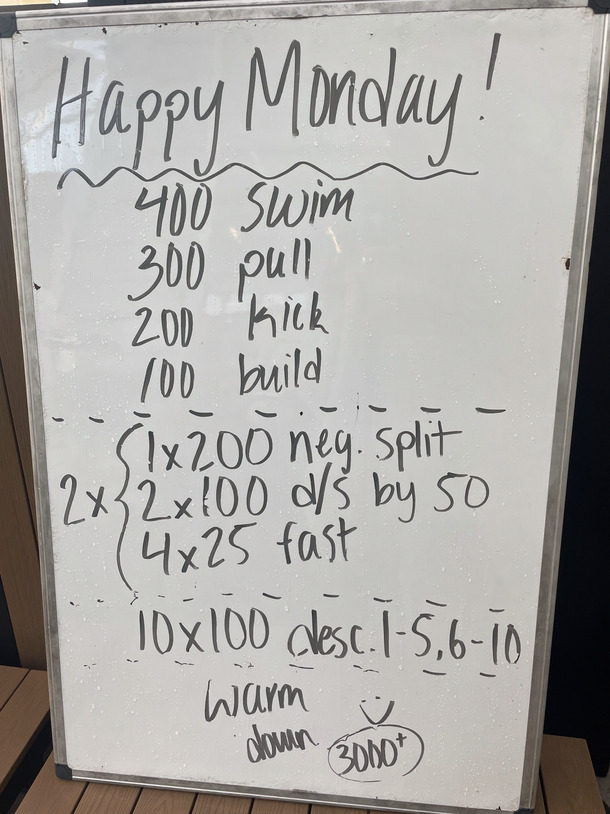 Happy Monday!
400 swim
300 pull
200 kick
100 build
2x { 1x200 neg. split
2x100 d/s by 50
4x25 fast
10x100 desc. 1-5, 6-10
warm
down
3000+